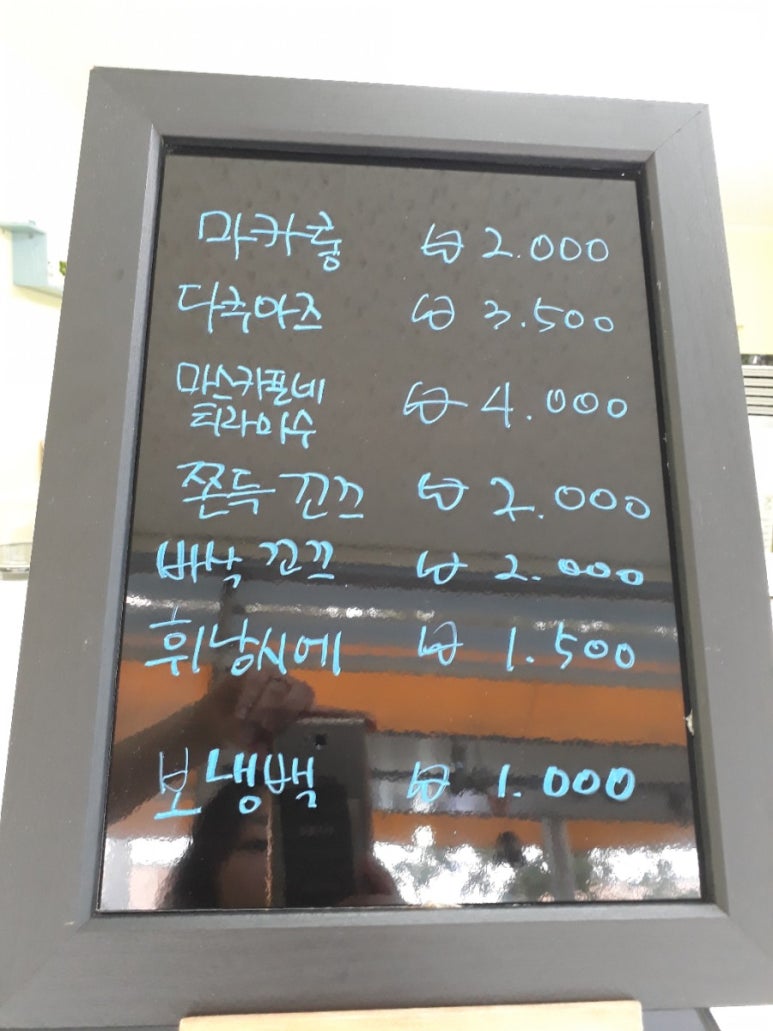 마카롱 ₩ 2.000
다쿠아즈 ₩ 3.500
마스카포네
티라미수 ₩ 4.000
쫀득 꼬끄 ₩ 2.000
바삭 꼬끄 ₩ 2.000
휘낭시에 ₩ 1.500
보냉백 ₩ 1.000